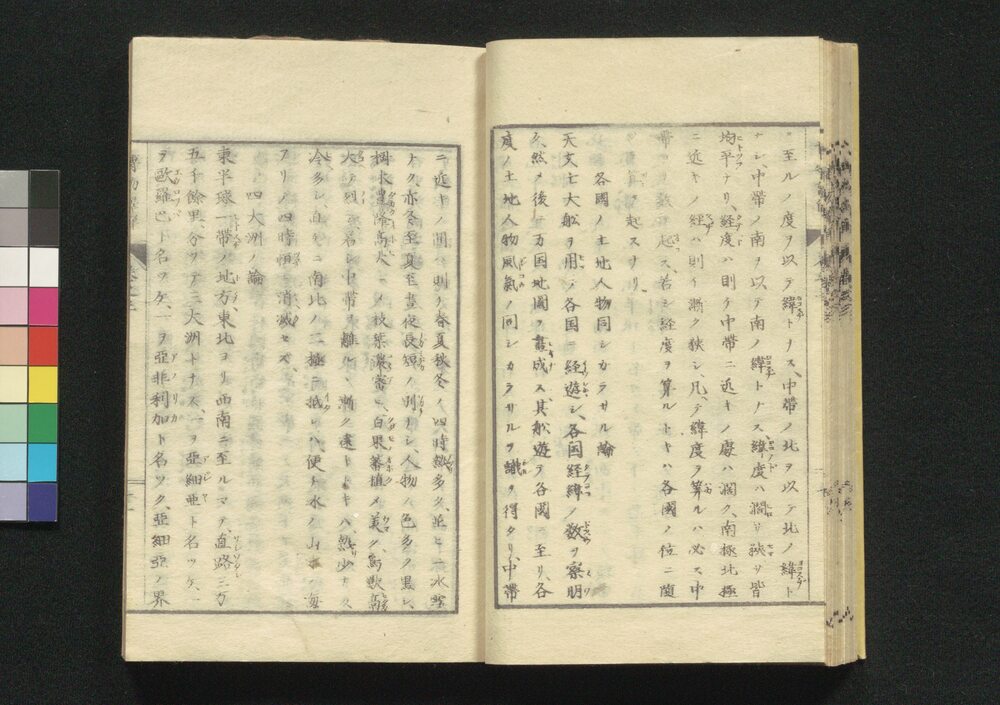 ニ至ルノ度ヲ以テ緯トナス、中帯ノ北ヲ以テ北ノ緯ト
ナシ、中帯ノ南ヲ以テ南ノ緯トナス緯度ハ濶サ狹サ皆
均平ナリ、経度ハ則チ中帯ニ近キノ處ハ濶ク、南極北極
ニ近キノ経ハ則チ漸ク狹シ、凡テ緯度ヲ算ルハ必ス中
帯ヨリ數ヘ起ス、若シ経度ヲ算ルトキハ各國ノ位ニ随
テ算ヘ起スナリ
各國ノ土地人物同シカラサル論
天文士大舩ヲ用テ各国ニ経遊シ、各国経緯ノ数ヲ察明
久然メ後ニ万国地圖ヲ畫成ス其舩遊テ各國ニ至リ、各
度ノ土地人物風氣ノ同シカラサルヲ識リ得タリ、中帯
ニ近キノ間ハ則チ春夏秋冬ノ四時 多ク、並ヒニ氷雪
ナク、亦冬至夏至晝夜長短ノ別ナシ、人物ハ色多ク黒シ、
樹木豊隆高大ニ 枝葉濃蕃ニ、百果蕃植メ美ク、鳥獣
大テ烈 若シ中帯ヲ離ルヽ漸ク遠トキハ熱少カク
冷多シ、直チニ南北ノ二極ニ抵レハ、便ト氷ノ山 海
アリ、四時恒ニ消滅セズ、
四大洲ノ論
東半球一帯ノ地方東北ヨリ西南ニ至ルマテ、直路三万
五千餘里、分ツテ三大洲トナス、一ヲ亞細亜ト名ツケ、一
ヲ歐羅巴ト名ツケ、一ヲ亞非利加ト名ツク、亞細亞ノ界